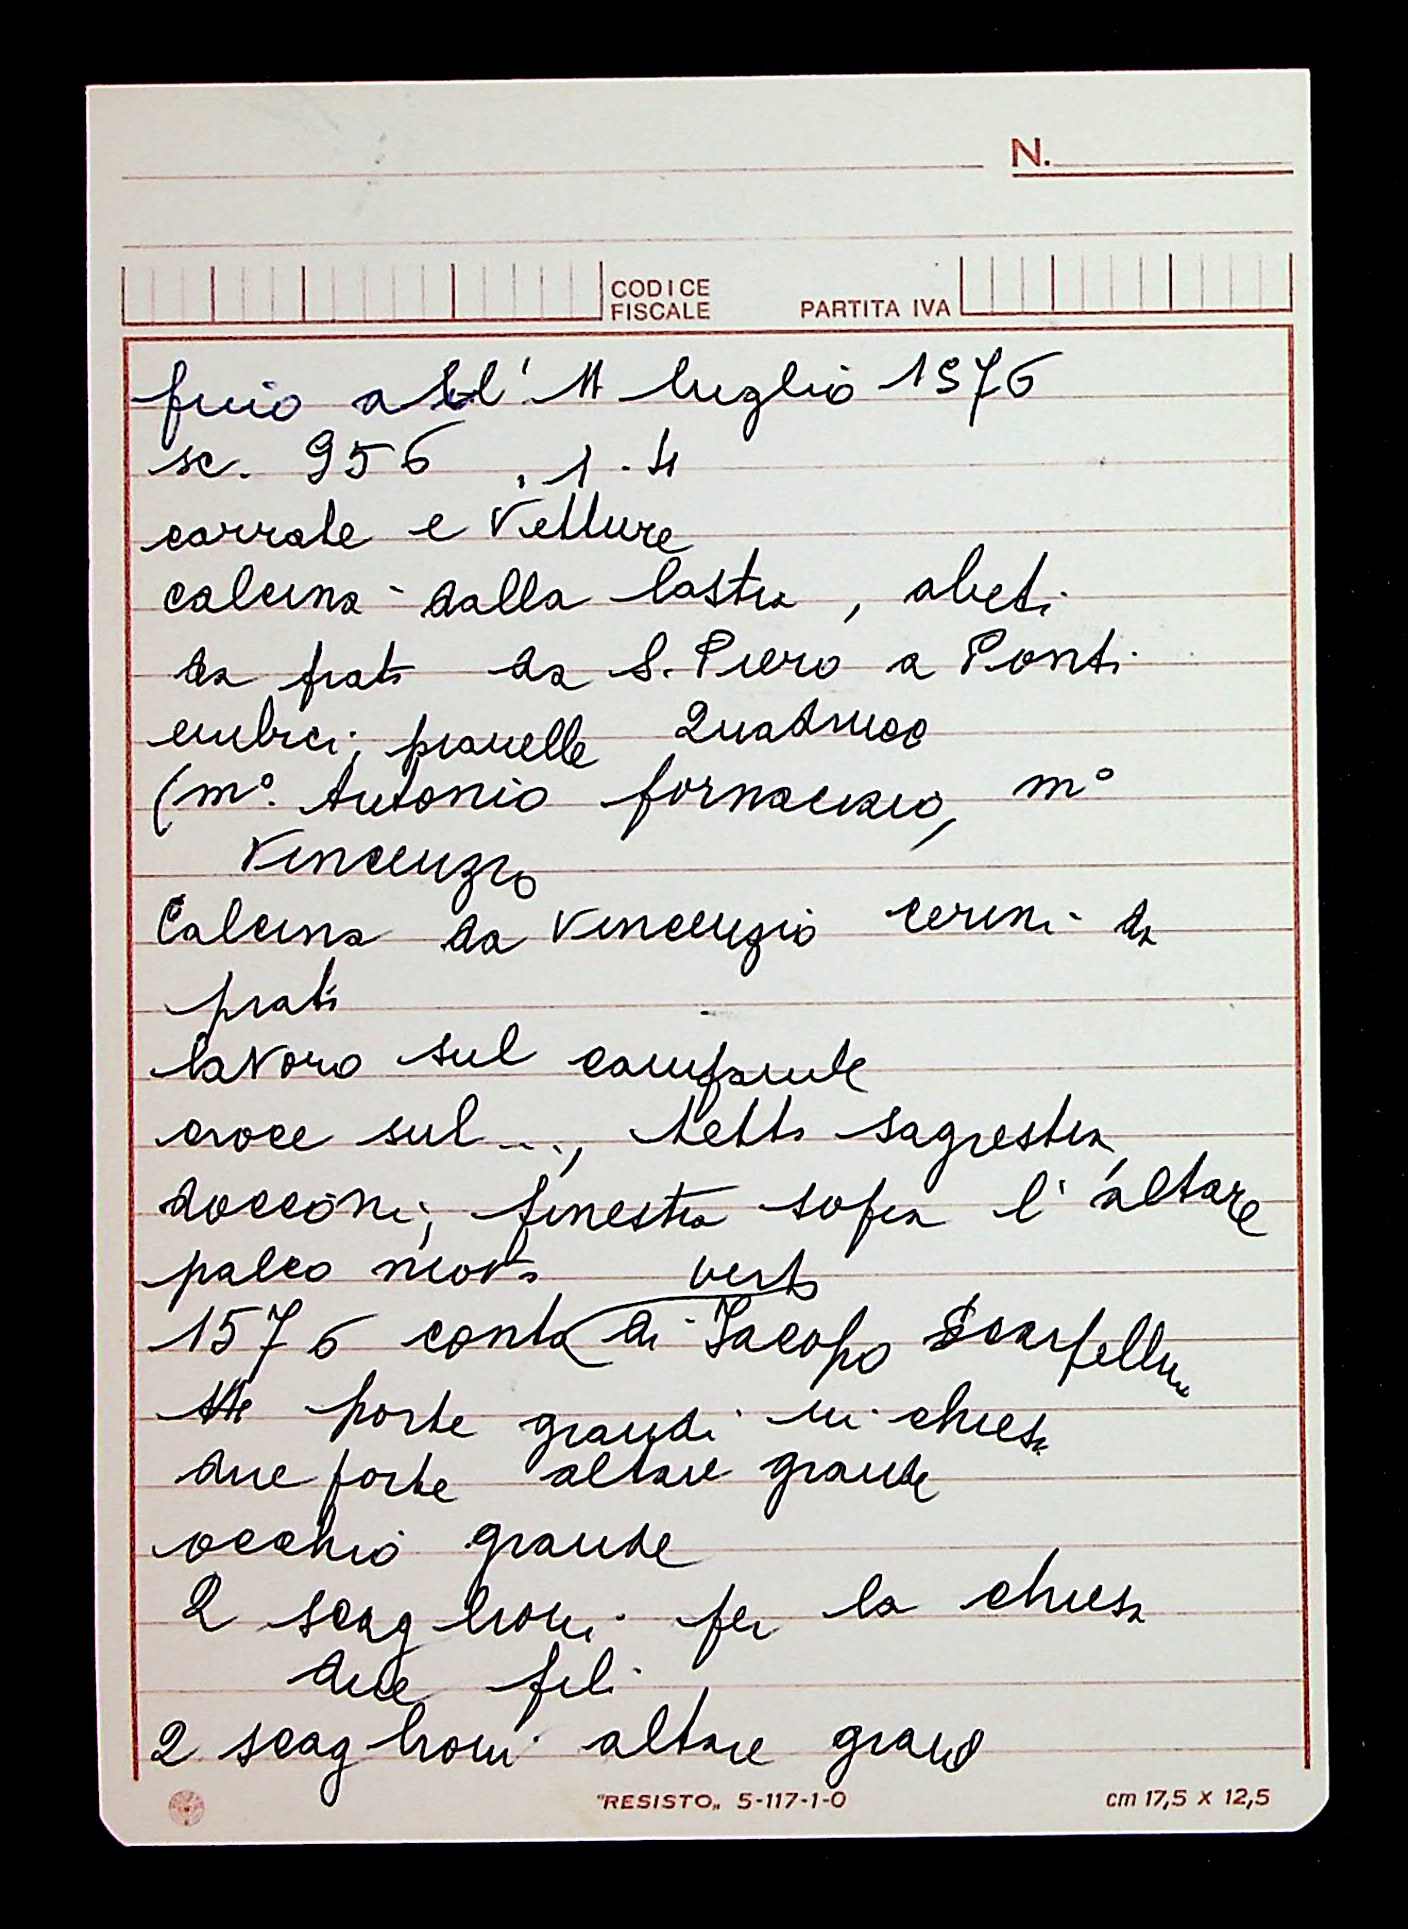 N.
CODICE
FISCALE
PARTITA IVA
fino all' 11 luglio 1576
sc. 956 . 1 . 4
carrate e vetture
calcina dalla lastra, abeti
da prato da S. Piero a Ponti
embrici, pianelle Quadrucc
(m°. Antonio fornaciaio, m°
Vincenzio
Calcina da Vincenzio Cerini da
prato
lavoro sul campanile
croce sul ..., tetto sagrestia,
doccioni, finestra sopra l'altare
palco
vesto
1576 conto di Jacopo Scarpellin
porte grandi in chiesa
due porte altare grande
occhio grande
2 scaglioni per la chiesa
due fili
2 scaglioni altare grand
"RESISTO„ 5-117-1-0
cm 17,5 x 12,5